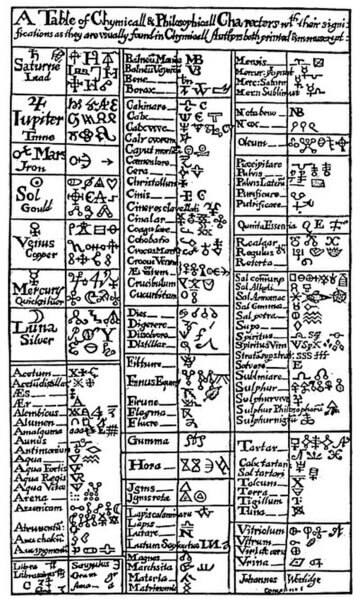 A Table of Chymicall & Philosophicall Charecters wth their signi-
fications as they are usually found in Chymicall Authors both printed & manuscript
Saturne
Lead
Iupiter
Tinne
Mars
Iron
Sol
Gould
Venus
Copper
Mercury
Quicksilver
Luna
Silver
Acetum
Æs
Aer
Alembicus
Alumen
Amalgama
Annus
Antimonium
Aqua
Aqua Fortis
Aqua Regis
Aqua Vitæ
Arena
Arsenicum
Auripigment
Balneū Mariæ MB
Balneū Vaporis
Bene
Borax
Calcinare
Calx
Calx vive
Caput mortuū
Cera
Christallum
Cinis
Cineres clavellati
Cinabar
Coagulare
Cohobatio
Crocus Martis
Crocus Veneris
Æs ustum
Crucibulum
Cucurbitum
Dies
Digerere
Dissolvere
Distillare
Fimus Equinꝰ
Gumma
Hora
Ignis
Ignis rotæ
Lapis calaminare
Lapis
Lutare
Lutum Sapientiæ
Magnes
Marchasita
Materia
Matrimoniū
Mensis
Merc: Saturni
Merc: Sublimat
Nota bene NB
Nox
Oleum
Præcipitare
Pulvis
Pulvis Laterū
Purificare
Putrificare
Quinta Essentia Q E
Realgar
Regulus
Retorta
Sal comune
Sal Alkali
Sal Armoniac
Sal Gemmæ
Sal petræ
Sapo
Spiritus
Spiritus Vini
Stratū super strat: SSS
Solvere
Sublimare
Sulphur
Sulphur vive
Sulphur Philosophorū
Sulphur nigrū
Tartar
Calx tartari
Sal tartari
Talcum
Terra
Tigillum
Tutia
Vitriolum
Vitrum
Urina
Libra
Gran
Johannes Worlidge